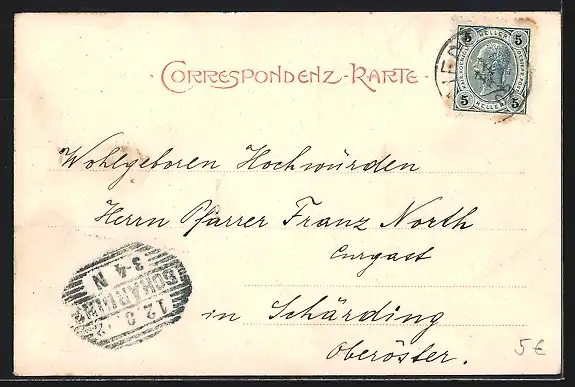 CORRESPONDENZ-KARTE
5 HELLER 5
5 HELLER 5
Wohlgeboren Hochwürden
Herrn Pfarrer Franz North
Curgast
in Schärding
Oberöster.
SCHÄRDING
12 9
3-4 N
5€